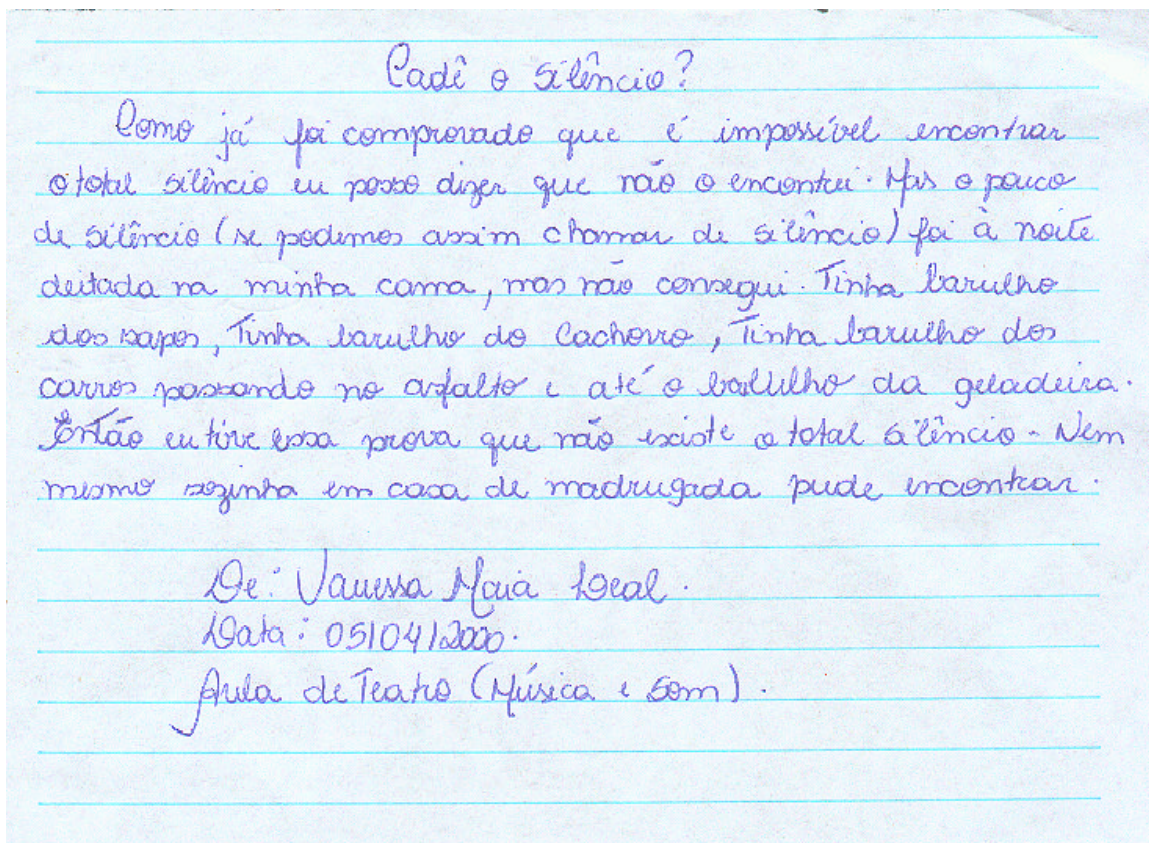 Cadê o silêncio?
Como já foi comprovado que é impossível encontrar
o total silêncio eu posso dizer que não o encontrei. Mas o pouco
de silêncio (se podemos assim chamar de silêncio) foi à noite
deitada na minha cama, mas não consegui. Tinha barulho
dos sapos, Tinha barulho do Cachorro, Tinha barulho dos
carros passando no asfalto e até o barulho da geladeira.
Então eu tive essa prova que não existe o total silêncio. Nem
mesmo sozinha em casa de madrugada pude encontrar.
De: Vanessa Maia Leal.
Data: 05/04/2000.
Aula de Teatro (Música e Som).